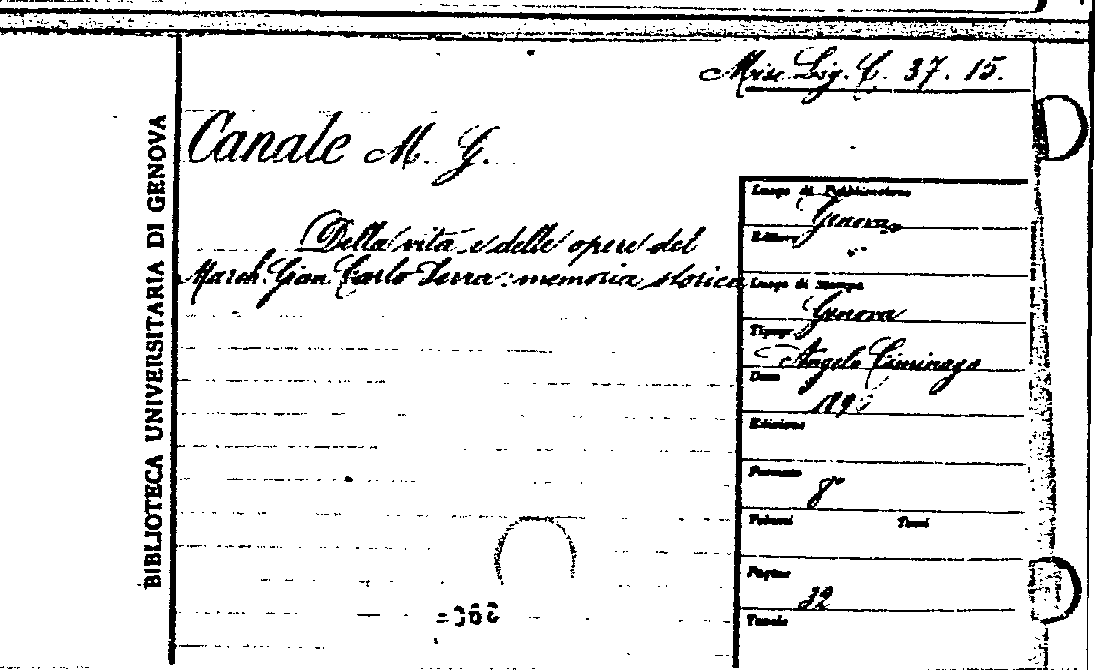 Misc. Lig. C. 37. 15.
BIBLIOTECA UNIVERSITARIA DI GENOVA
Canale M. G.
Della vita e delle opere del
March. Gian Carlo Serra: memoria storica
Luogo di Pubblicazione
Genova
Editore
Luogo di stampa
Genova
Tipogr.
Angelo Ciminago
Data
Edizione
Formato
8°
Volumi Tomi
Pagine
32
Tavole